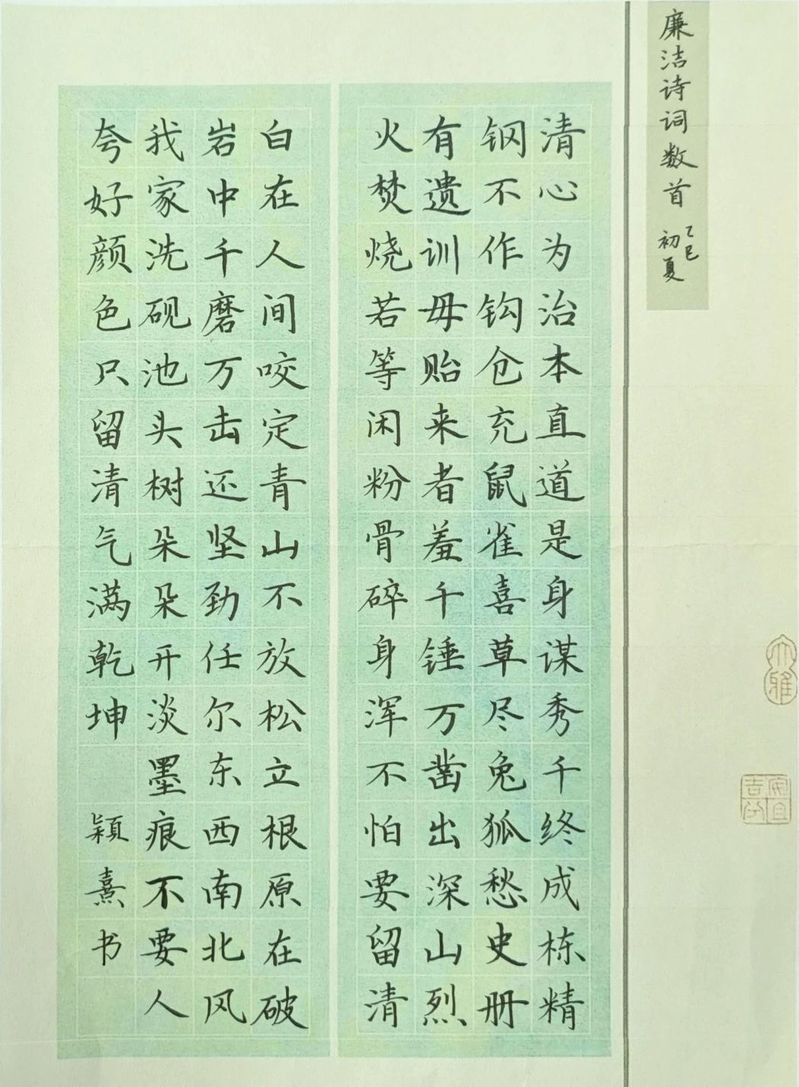 廉洁诗词数首
乙巳
初夏
清心为治本直道是身谋秀千终成栋精
钢不作钩仓充鼠雀喜草尽兔狐愁史册
有遗训毋贻来者羞千锤万凿出深山烈
火焚烧若等闲粉骨碎身浑不怕要留清
白在人间咬定青山不放松立根原在破
岩中千磨万击还坚劲任尔东西南北风
我家洗砚池头树朵朵开淡墨痕不要人
夸好颜色只留清气满乾坤
穎熹书
大雅
安且吉兮